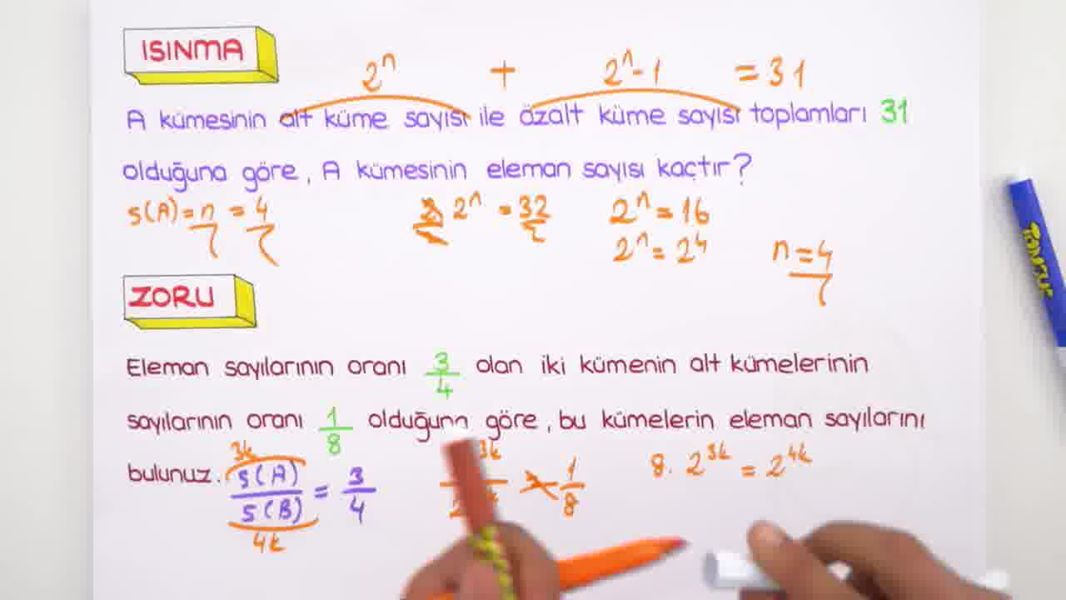 ISINMA
2ⁿ + 2ⁿ-1 = 31
A kümesinin alt küme sayısı ile özalt küme sayısı toplamları 31
olduğuna göre, A kümesinin eleman sayısı kaçtır?
s(A)=n = 4
2ⁿ = 32/2
2ⁿ = 16
2ⁿ = 2⁴
n = 4
ZORU
Eleman sayılarının oranı 3/4 olan iki kümenin alt kümelerinin
sayılarının oranı 1/8 olduğuna göre, bu kümelerin eleman sayılarını
bulunuz.
3k
s(A)/s(B) = 3/4
4k
3k
1/8
8. 2³ᵏ = 2⁴ᵏ